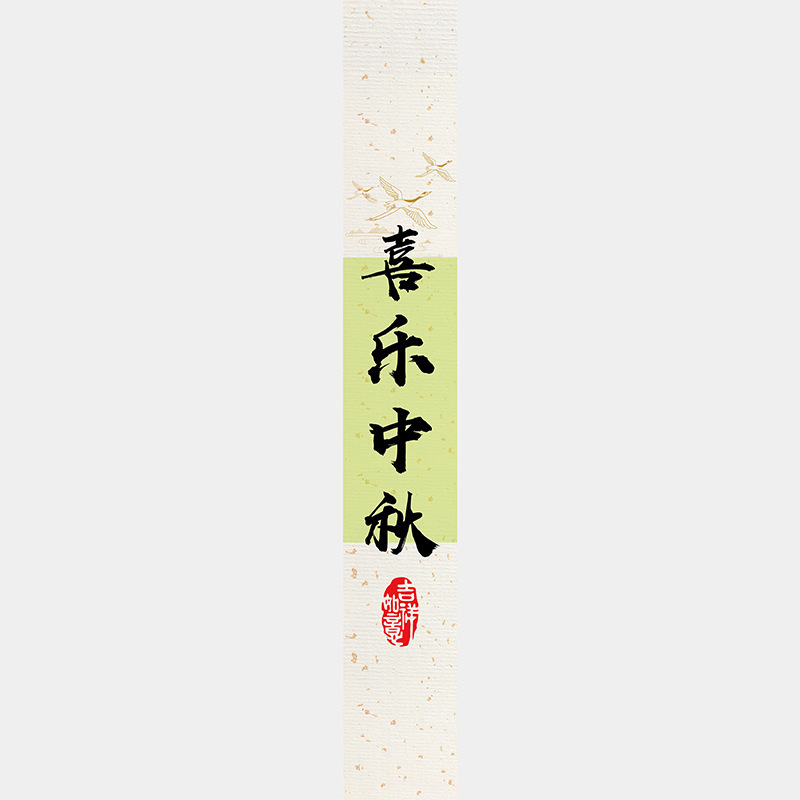 喜乐中秋
吉祥
如意